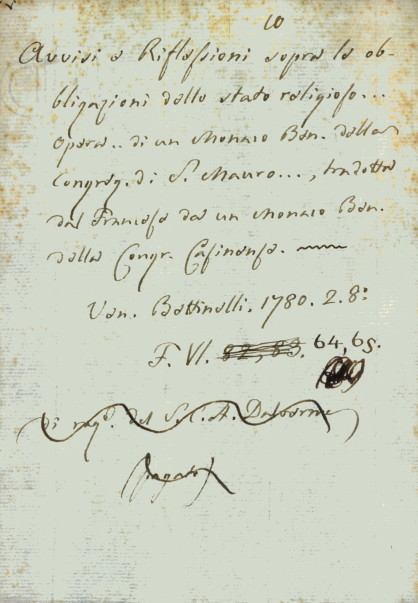 10
Avvisi e Riflessioni sopra le ob-
bligazioni dello stato religioso...
Opera.. di un Monaco Ben. della
Congreg. di S. Mauro..., tradotta
dal Francese da un Monaco Ben.
della Congr. Casinense.
Ven. Bettinelli. 1780. 2. 8:
F. VI. 82, 83. 64, 65.
Di rag. del S. C. A.
(pagato)